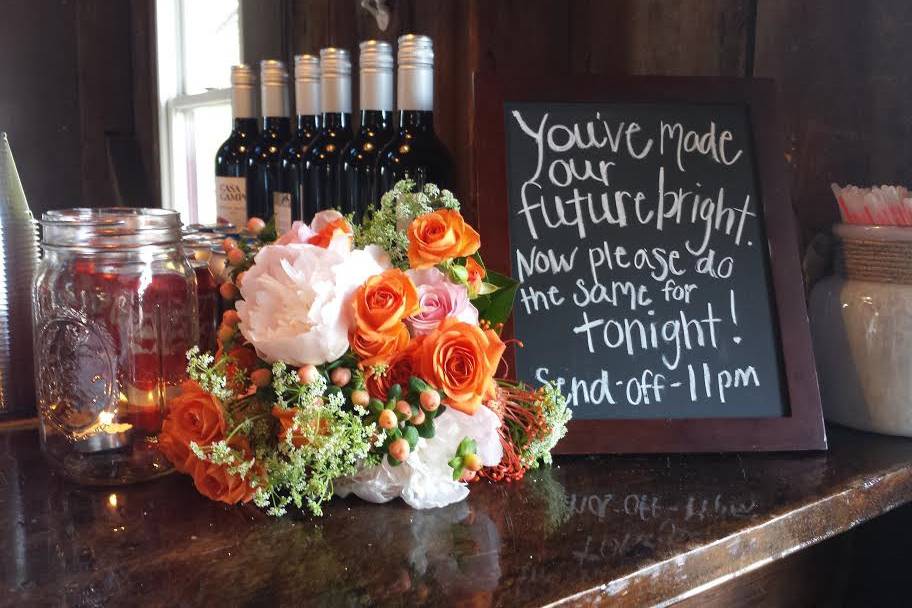 CASA
CAMP
You've made
our
future bright.
Now please do
the same for
tonight!
Send-off-11pm